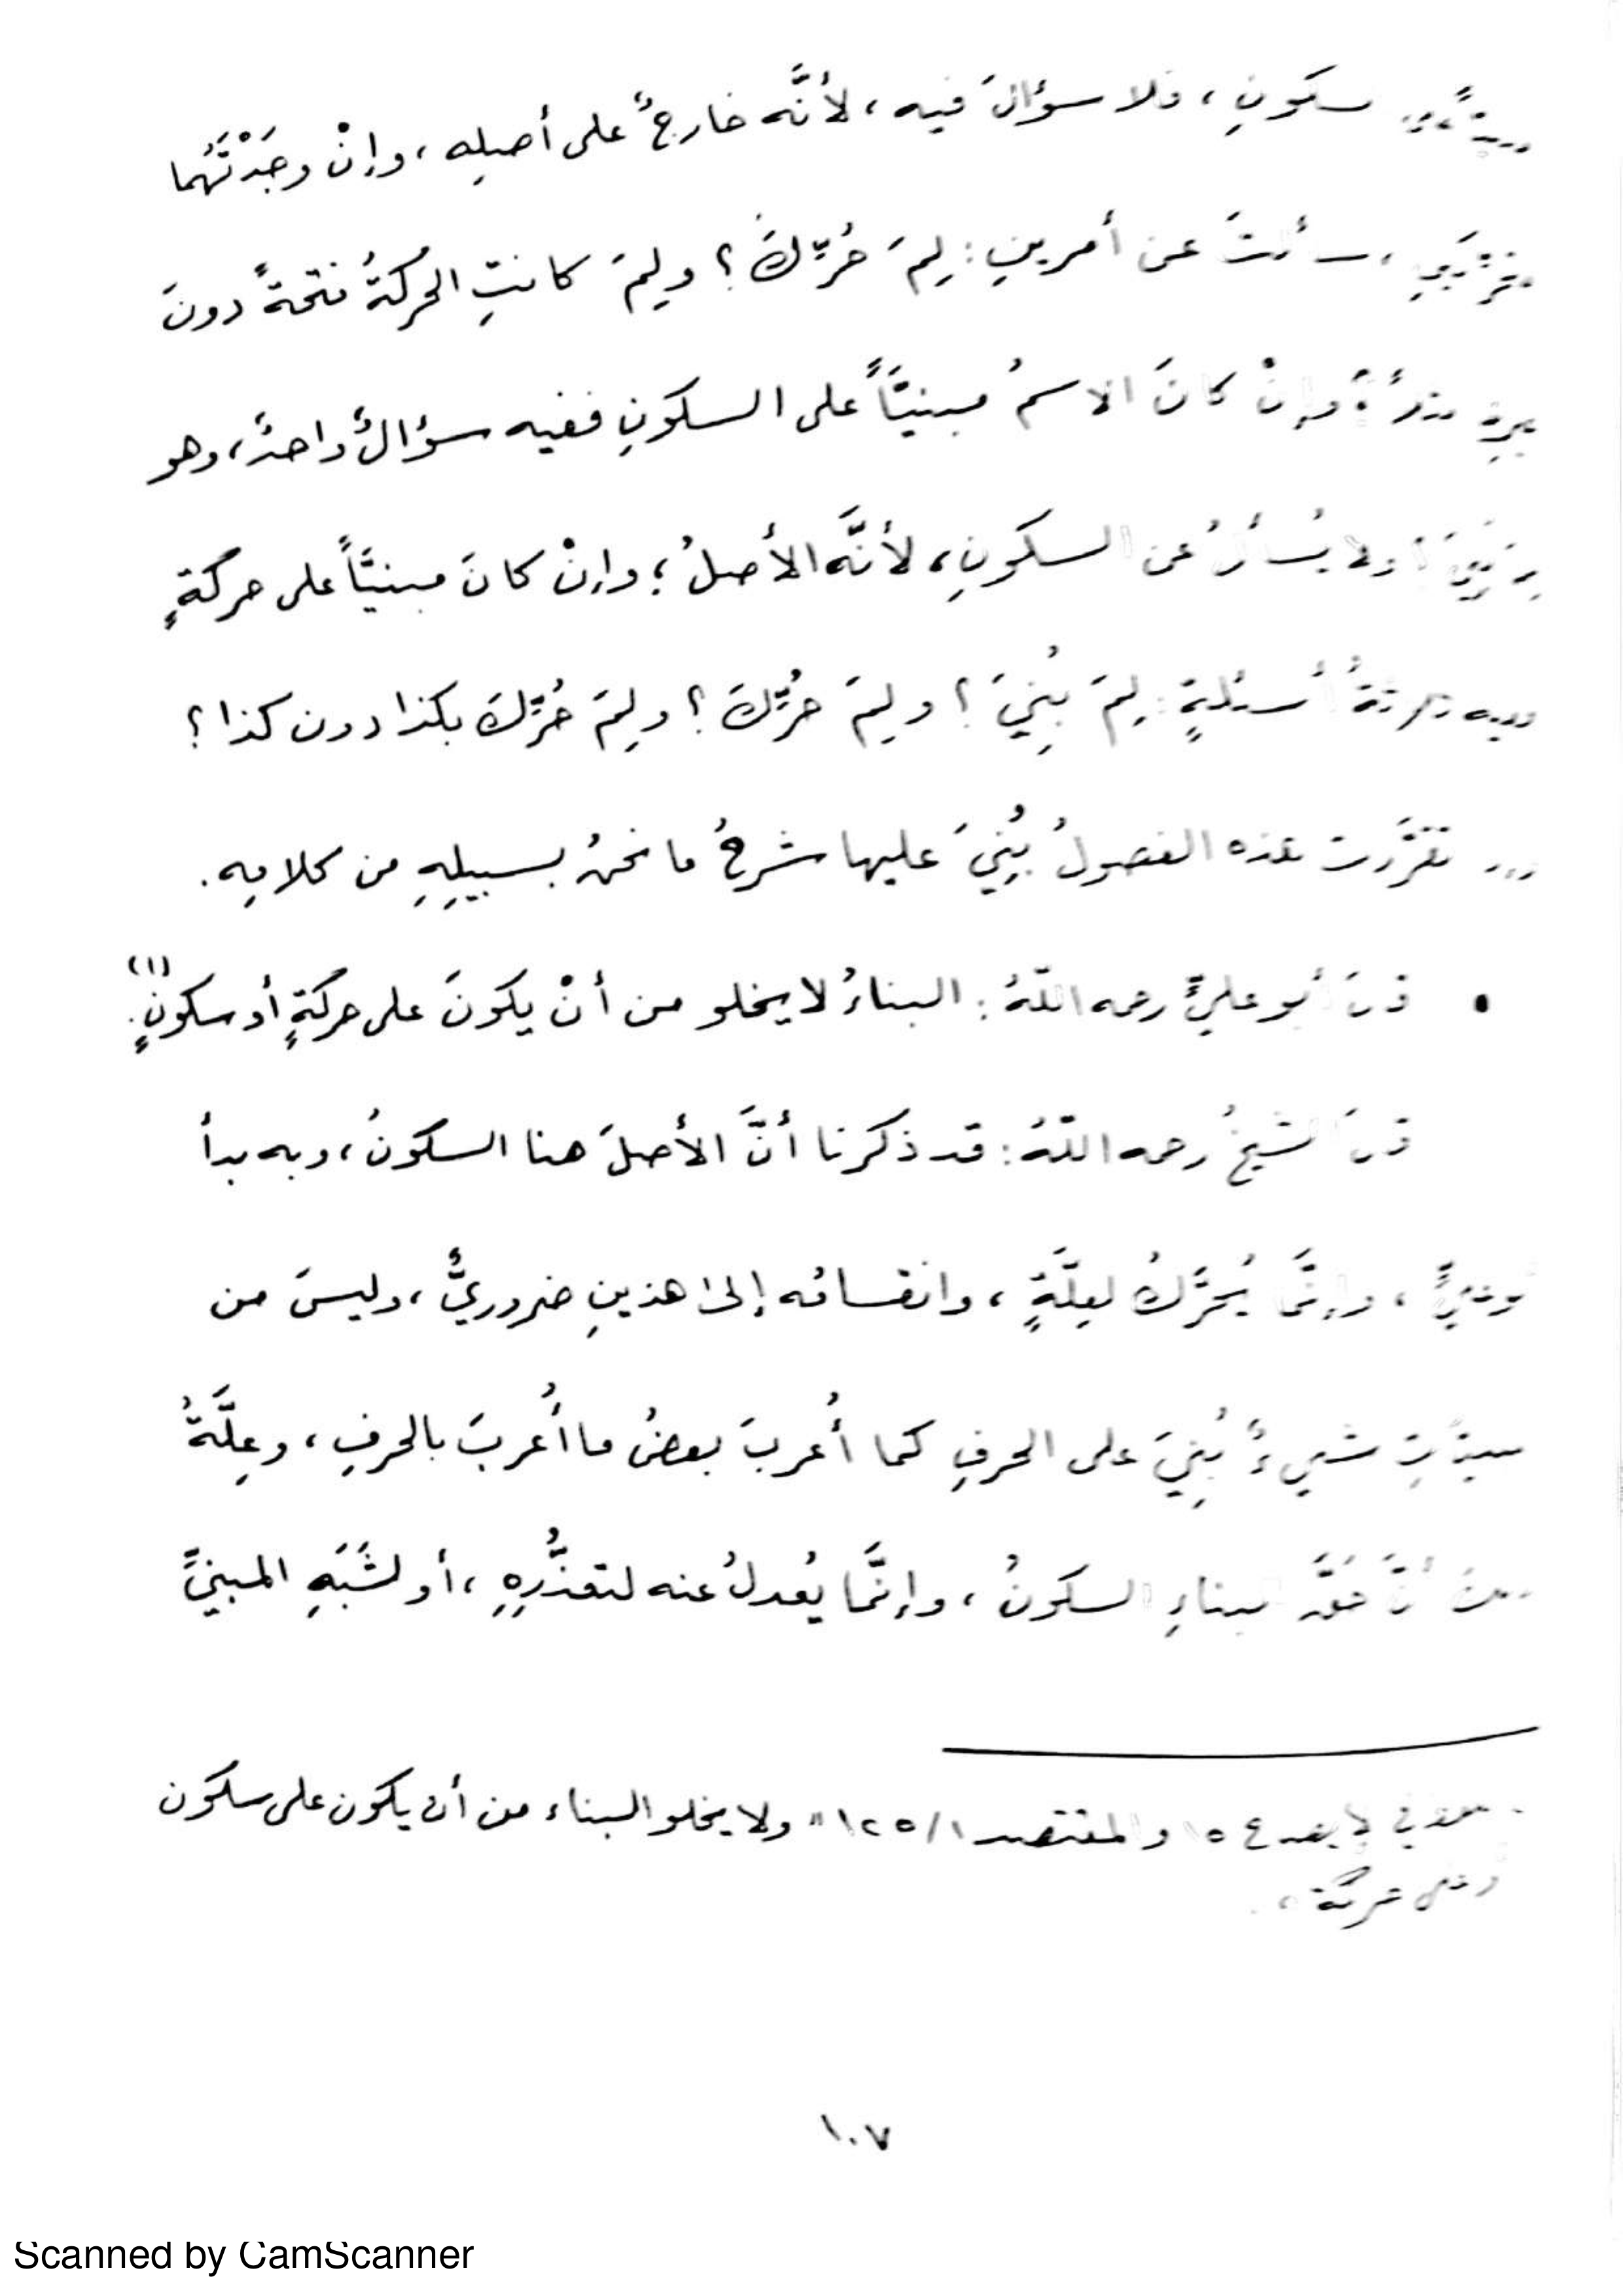 سكونٍ، فلا سؤالَ فيه، لأنَّه خارجٌ على أصلِه، وإنْ وجَدْتَهُما
سألتَ عن أمرينِ: لِمَ حُرِّكَ؟ ولِمَ كانتِ الحركةُ فتحةً دونَ
وإنْ كانَ الاسمُ مبنيَّاً على السكونِ ففيه سؤالٌ واحدٌ، وهو
ولا يُسأَلُ عن السكونِ، لأنَّه الأصلُ؛ وإنْ كانَ مبنيَّاً على حركةٍ
ففيه ثلاثةُ أسئلةٍ: لِمَ بُنِيَ؟ ولِمَ حُرِّكَ؟ ولِمَ حُرِّكَ بكذا دون كذا؟
تقرَّرت هذه الفصولُ بُنِيَ عليها شرحُ ما نحنُ بسبيلِهِ من كلامِه.
• قالَ أبو عليٍّ رحمه اللّهُ: البناءُ لا يخلو من أنْ يكونَ على حركةٍ أو سكونٍ(١).
قالَ الشيخُ رحمه اللّهُ: قد ذكرنا أنَّ الأصلَ هنا السكونُ، وبه بدأ
، وإنَّما يُحرَّكُ لعِلَّةٍ، وانقسامُه إلى هذينِ ضروريٌّ، وليسَ من
المبنيَّاتِ شيءٌ بُنِيَ على الحرفِ كما أُعربَ بعضُ ما أُعربَ بالحرفِ، وعِلَّةُ
ذلكَ أنَّ حقَّ البناءِ السكونُ، وإنَّما يُعدلُ عنه لتعذُّرِهِ، أو لشَبَهِ المبنيِّ
في الإيضاح ١٥ والمقتصد ١/١٢٥ " ولا يخلو البناء من أن يكون على سكون
وعلى حركة ".
١٠٧
Scanned by CamScanner